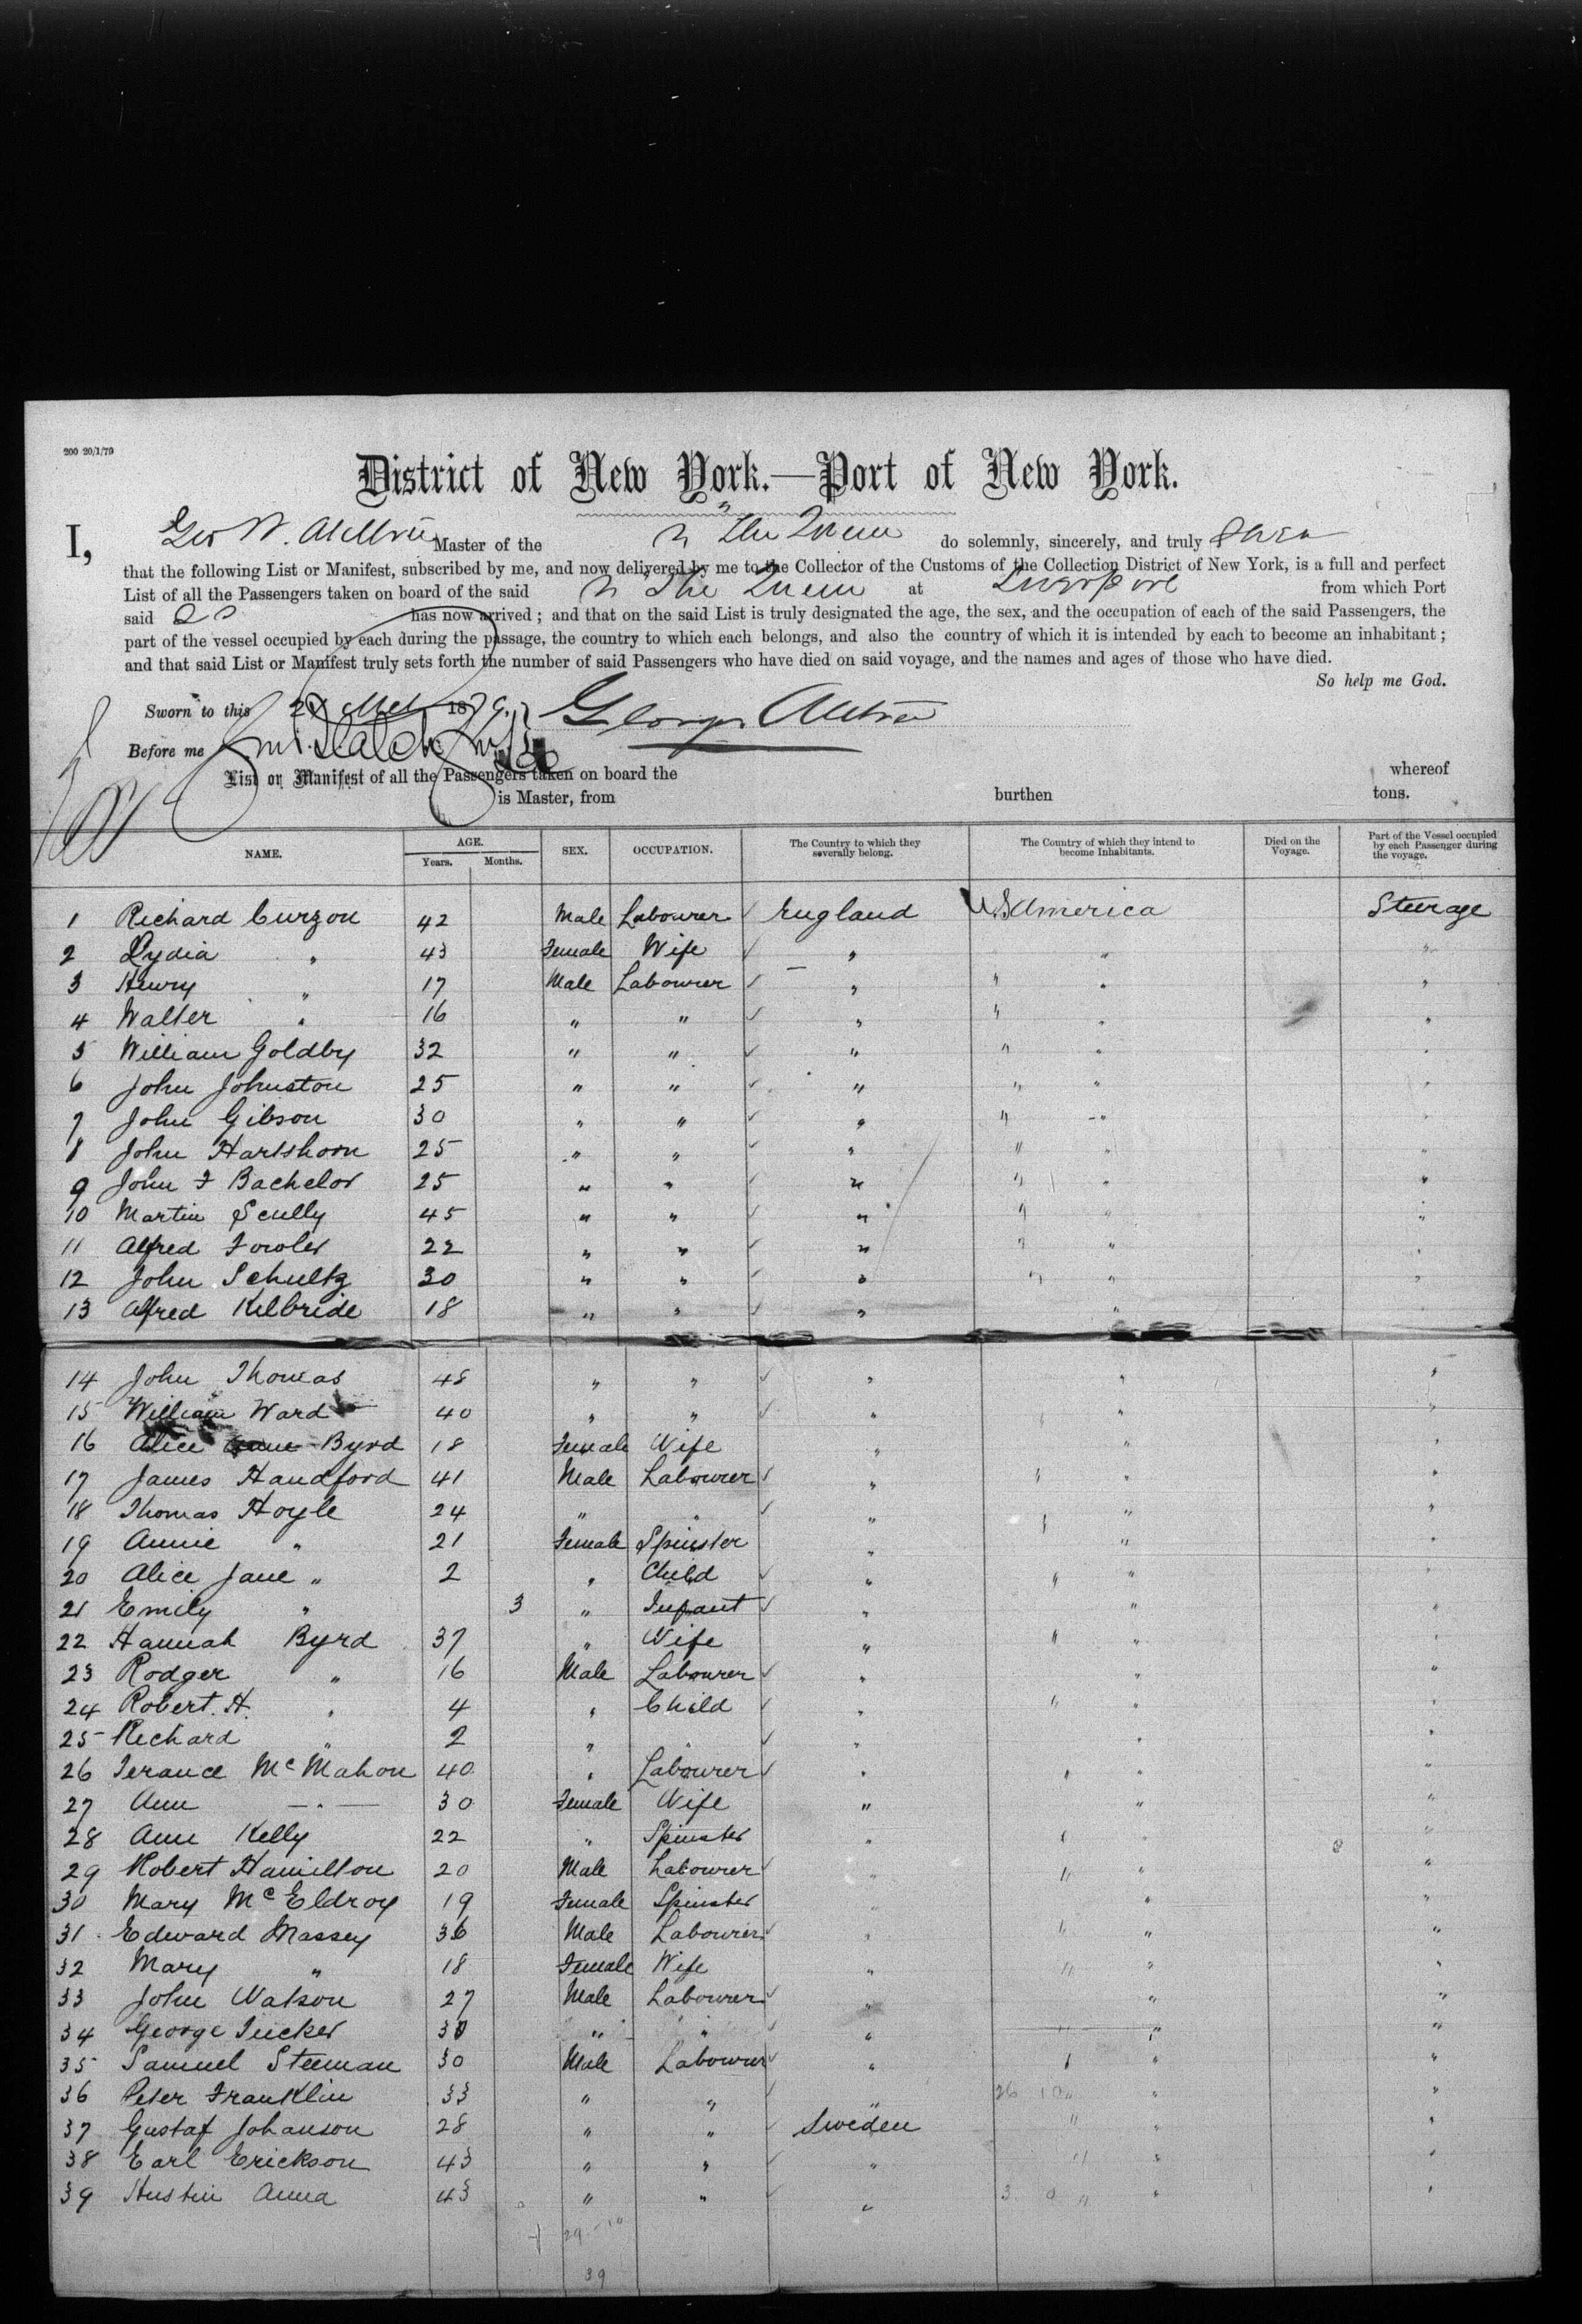 200 20/1/79
District of New York.—Port of New York.
I, Geo W. Master of the The Queen do solemnly, sincerely, and truly
that the following List or Manifest, subscribed by me, and now delivered by me to the Collector of the Customs of the Collection District of New York, is a full and perfect
List of all the Passengers taken on board of the said The Queen at Liverpool from which Port
said has now arrived; and that on the said List is truly designated the age, the sex, and the occupation of each of the said Passengers, the
part of the vessel occupied by each during the passage, the country to which each belongs, and also the country of which it is intended by each to become an inhabitant;
and that said List or Manifest truly sets forth the number of said Passengers who have died on said voyage, and the names and ages of those who have died.
So help me God.
Sworn to this 1879 George
Before me
List or Manifest of all the Passengers taken on board the whereof
is Master, from burthen tons.
NAME. AGE. Years. Months. SEX. OCCUPATION. The Country to which they severally belong. The Country of which they intend to become Inhabitants. Died on the Voyage. Part of the Vessel occupied by each Passenger during the voyage.
1 Richard Curzon 42 Male Labourer England U.S America Steerage
2 Lydia " 43 Female Wife " " "
3 Henry " 17 Male Labourer " " " "
4 Walter " 16 " " " " " "
5 William Goldby 32 " " " " " "
6 John Johnston 25 " " " " " "
7 John Gibson 30 " " " " " "
8 John Hartshorn 25 " " " " " "
9 John F Bachelor 25 " " " " " "
10 Martin Scully 45 " " " " " "
11 Alfred Fowler 22 " " " " " "
12 John Schultz 30 " " " " " "
13 Alfred Kilbride 18 " " " "
14 John Thomas 48 " " " " "
15 William Ward 40 " " " " "
16 Alice Byrd 18 Female Wife " " "
17 James Handford 41 Male Labourer " " " "
18 Thomas Hoyle 24 " " " " "
19 Annie " 21 Female Spinster " " "
20 Alice Jane " 2 " Child " " " "
21 Emily " 3 " Infant " " "
22 Hannah Byrd 37 " Wife " " " "
23 Rodger " 16 Male Labourer " " "
24 Robert. H. " 4 " Child " " " "
25 Richard " 2 " " " " "
26 Terance McMahon 40 " Labourer " " " "
27 Ann —"— 30 Female Wife " " "
28 Ann Kelly 22 " Spinster " " " "
29 Robert Hamilton 20 Male Labourer " " " "
30 Mary McEldroy 19 Female Spinster " " "
31 Edward Massey 36 Male Labourer " " " "
32 Mary " 18 Female Wife " " " "
33 John Watson 27 Male Labourer " " "
34 George Tucker 30 " " " " " "
35 Samuel Steeman 30 Male Labourer " " " "
36 Peter Franklin 33 " " " " "
37 Gustaf Johanson 28 " " Sweden " " "
38 Earl Erickson 43 " " " " " "
39 Hustin Anna 43 " " " " " "
39